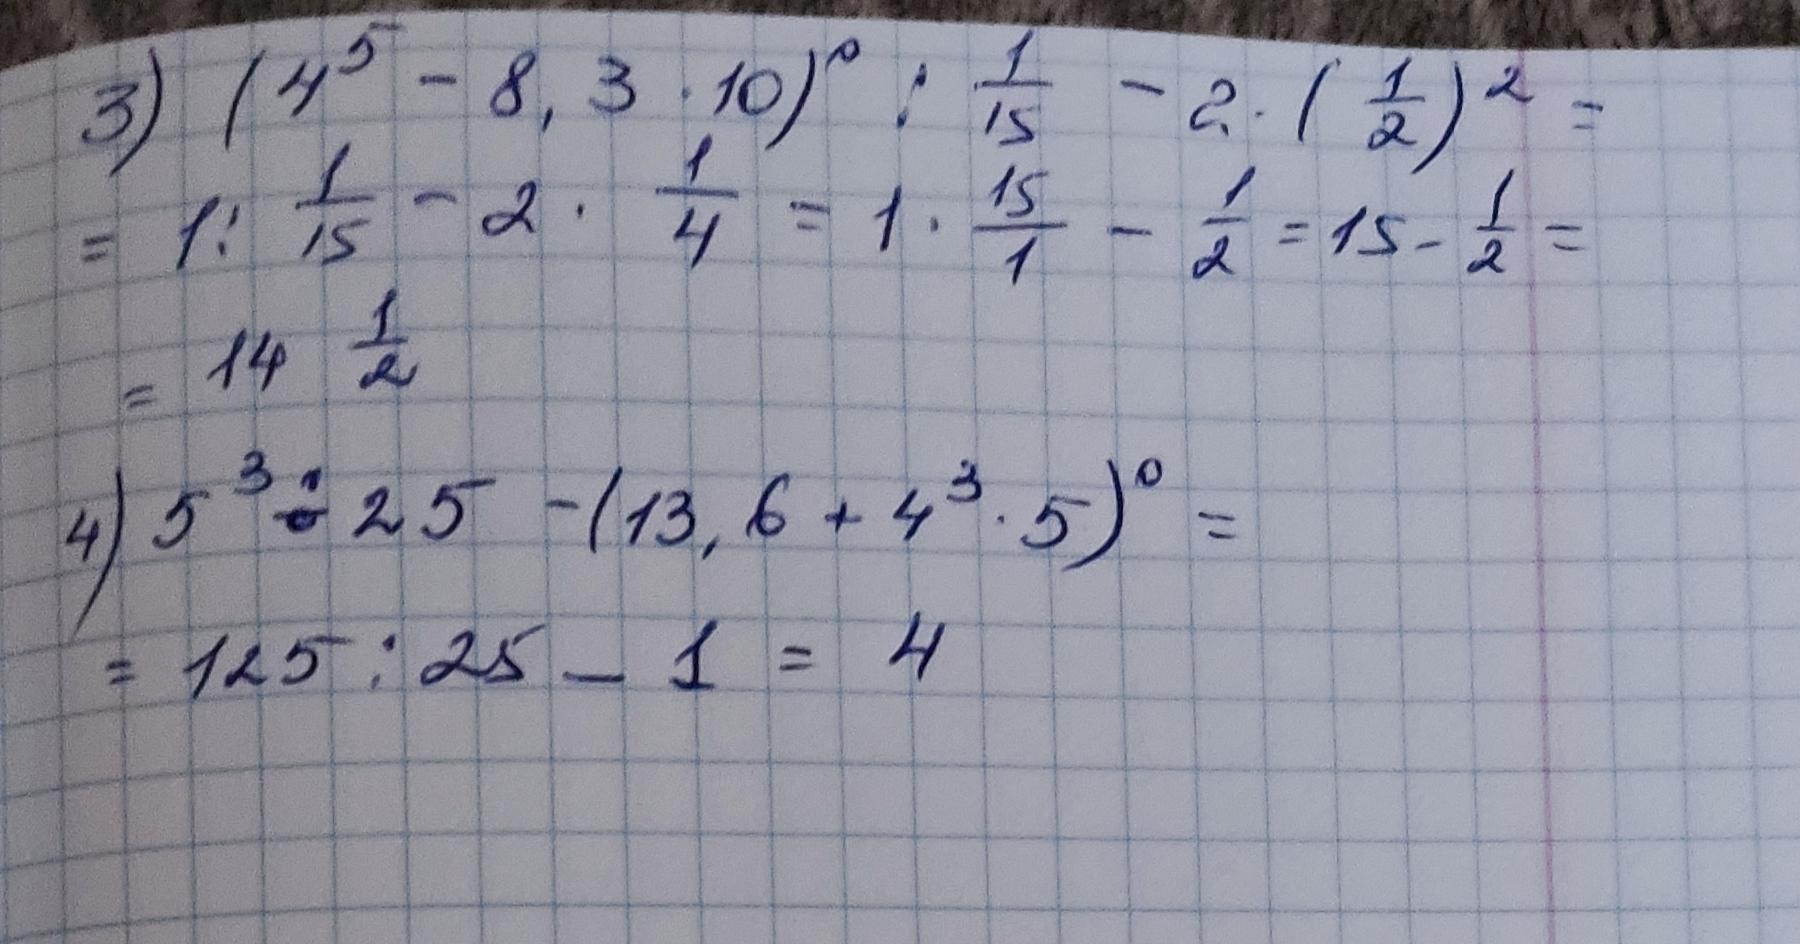 3) (4⁵ - 8,3 · 10)⁰ : 1/15 - 2 · (1/2)² =
= 1 : 1/15 - 2 · 1/4 = 1 · 15/1 - 1/2 = 15 - 1/2 =
= 14 1/2
4) 5³ : 25 - (13,6 + 4³ · 5)⁰ =
= 125 : 25 - 1 = 4